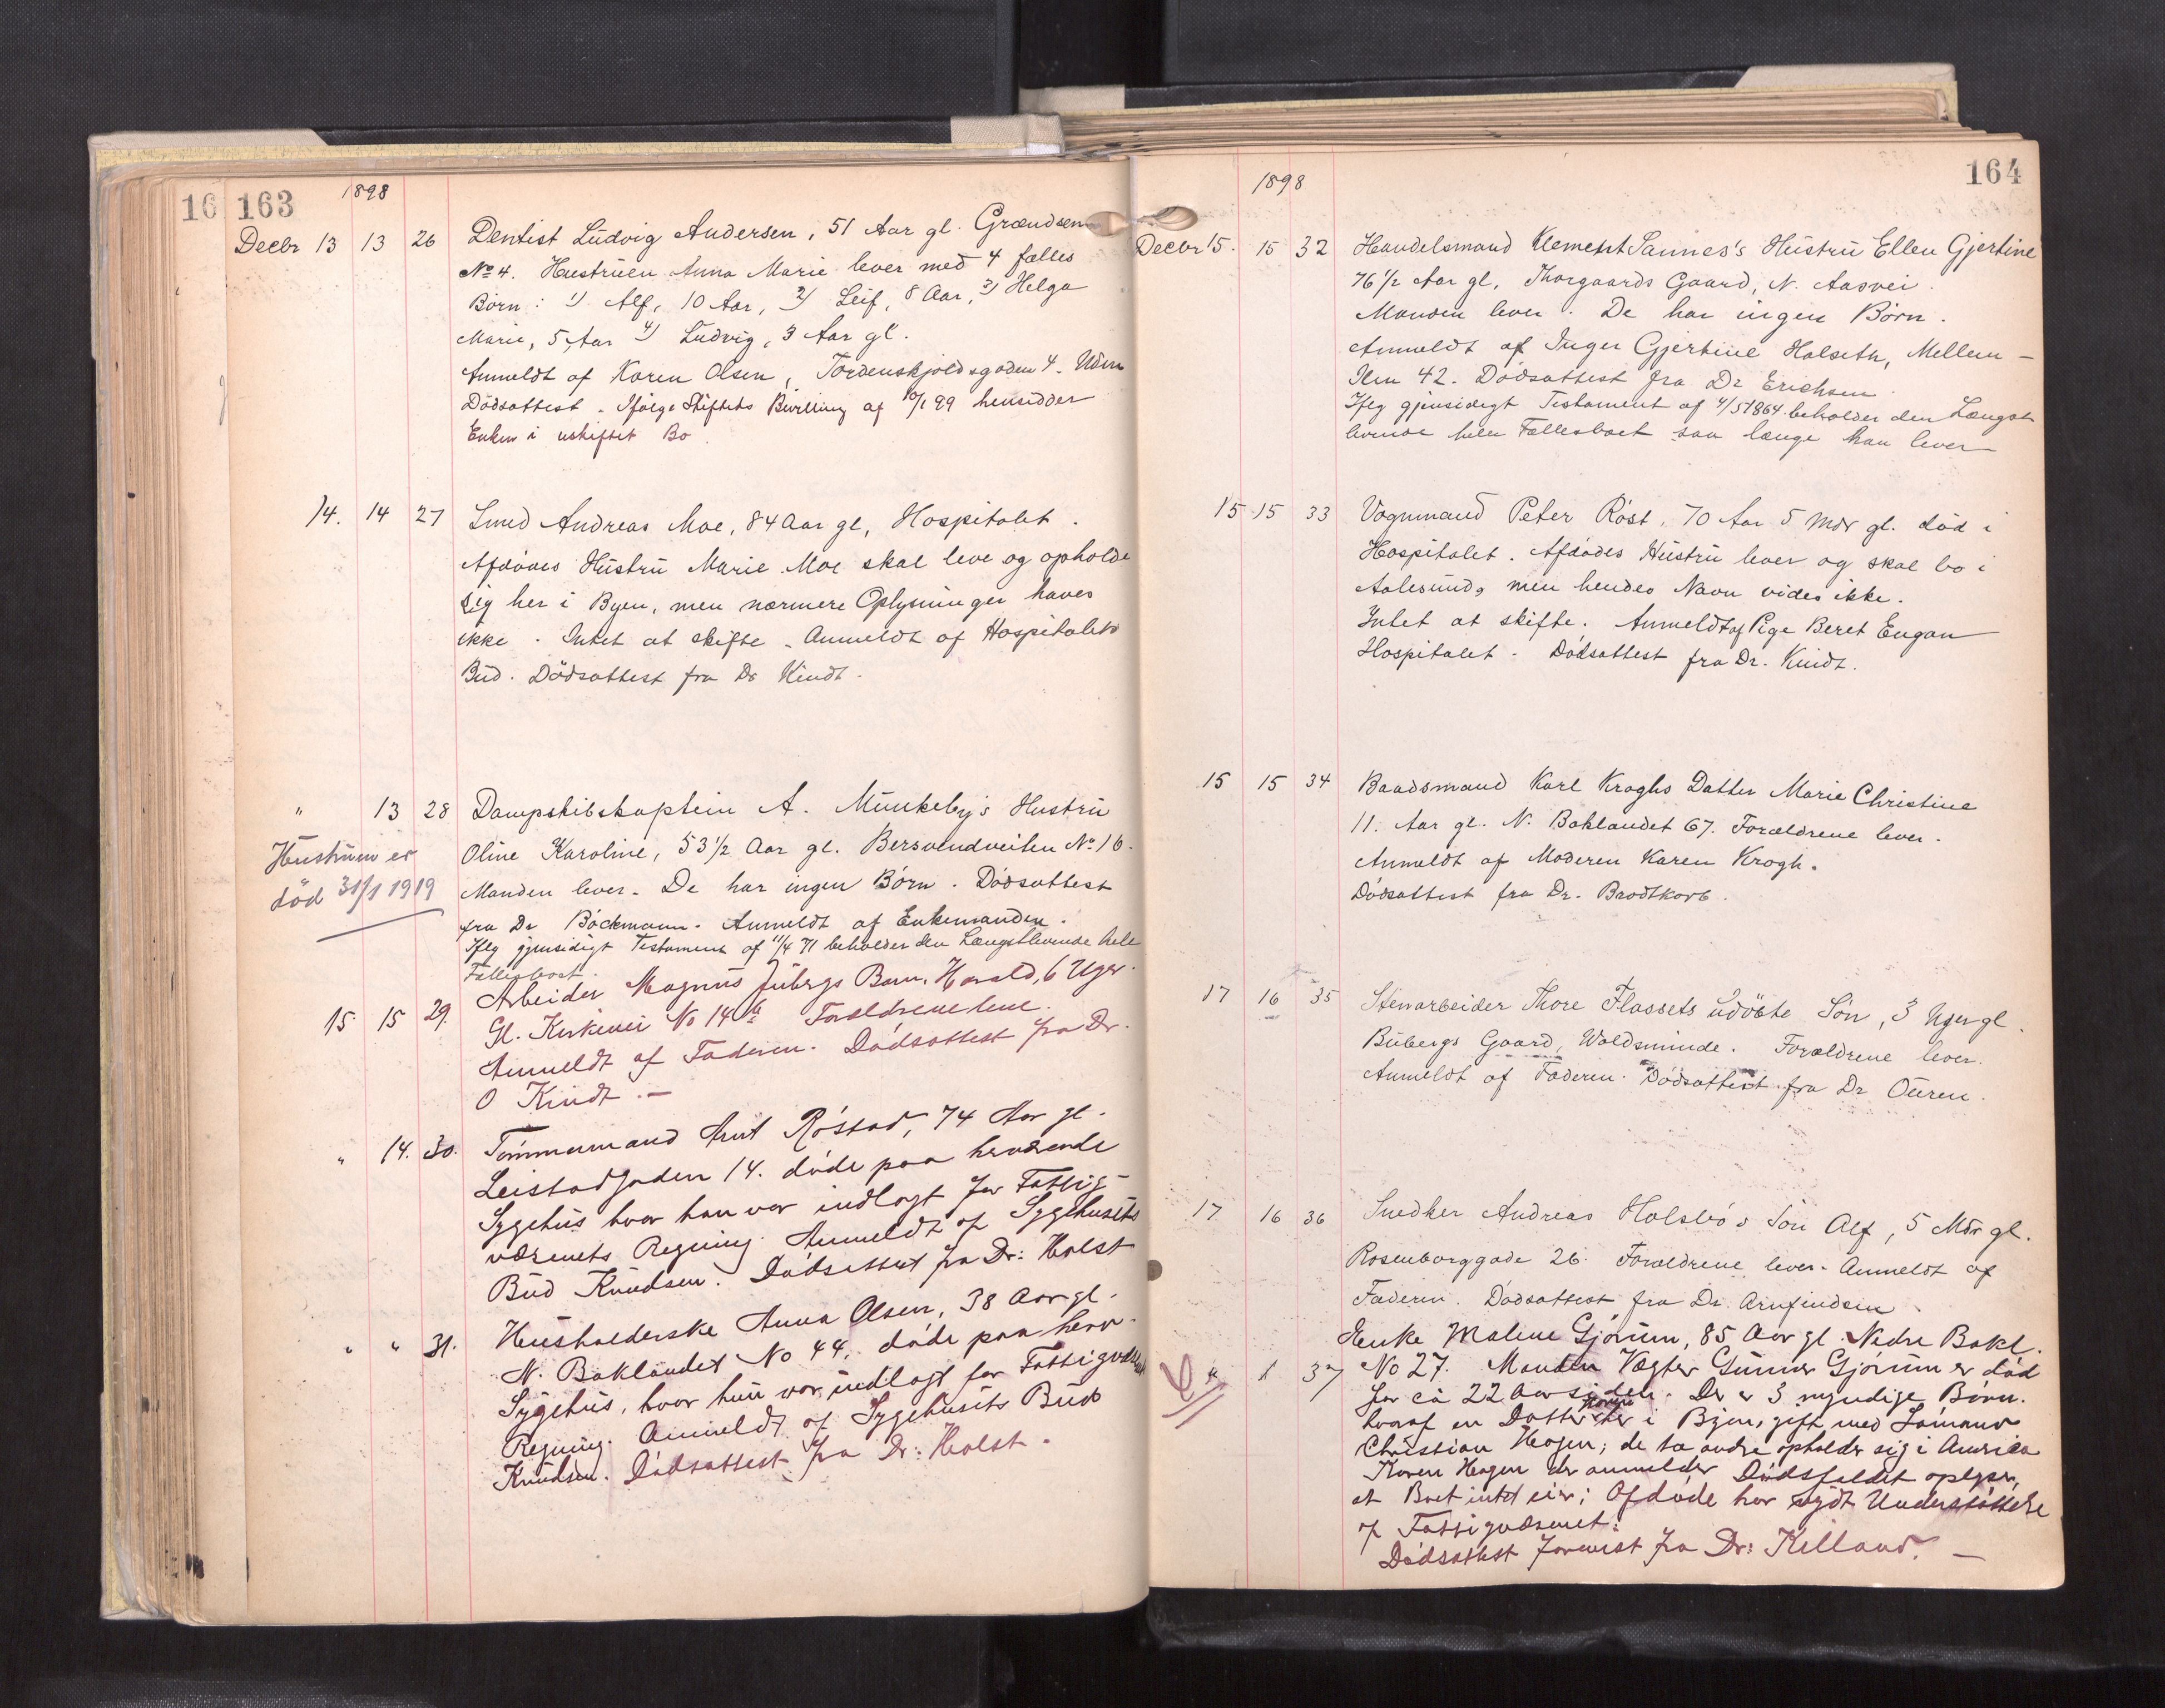 16 163 1898
Decbr 13 13 26 Dentist Ludvig Andersen, 51 Aar gl. Grændsen
No 4. Hustruen Anna Marie lever med 4 fælles
Børn: 1) Alf, 10 Aar, 2) Leif, 8 Aar, 3) Helga
Marie, 5 Aar 4) Ludvig, 3 Aar gl.
Anmeldt af Karen Olsen, Tordenskjoldsgaden 4. Uden
Dødsattest. Ifølge Skiftets Bevilling af 10/1 99 hensidder
Enken i uskiftet Bo.
14. 14 27 Smed Andreas Moe, 84 Aar gl, Hospitalet.
Afdødes Hustru Marie Moe skal leve og opholde
sig her i Byen, men nærmere Oplysninger haves
ikke. Intet at skifte. Anmeldt af Hospitalets
Bud. Dødsattest fra Dr Kindt.
" 13 28 Dampskibskaptein A. Munkeby's Hustru
Hustruen er
død 31/1 1919
Oline Karoline, 53 1/2 Aar gl. Bersvendveiten No 16.
Manden lever. De har ingen Børn. Dødsattest
fra Dr Böckmann. Anmeldt af Enkemanden.
Iflg gjensidigt Testament af 11/4 71 beholder den Længstlevende hele
Fællesboet.
15 15 29. Arbeider Magnus Jubergs Barn, Harald, 6 Uger.
Gl. Kirkevei No 14 Forældrene leve.
Anmeldt af Faderen. Dødsattest fra Dr.
O Kindt. —
" 14. 30. Tømmermand Arnt Røstad, 74 Aar gl.
Leistadgaden 14. døde paa herværende
Sygehus hvor han var indlagt for Fattig-
væsenets Regning. Anmeldt af Sygehusets
Bud Knudsen. Dødsattest fra Dr: Holst
" " 31. Husholderske Anna Olsen, 38 Aar gl.
N. Baklandet No 44, døde paa herv.
Sygehus, hvor hun var indlagt for Fattigvæs
Regning. Anmeldt af Sygehusets Bud
Knudsen. Dødsattest fra Dr: Holst.
1898 164
Decbr 15. 15 32 Handelsmand Klement Sannes's Hustru Ellen Gjertine
76 1/2 Aar gl, Thorgaards Gaard, N. Aasvei.
Manden lever. De har ingen Børn.
Anmeldt af Inger Gjertine Halseth, Mellem-
Ilen 42. Dødsattest fra Dr Erichsen.
Iflg gjensidigt Testament af 4/5 1864 beholder den Længst
levende hele Fællesboet saa længe han lever
15 15 33 Vognmand Peter Röst, 70 Aar 5 Mdr gl. død i
Hospitalet. Afdødes Hustru lever og skal bo i
Aalesund, men hendes Navn vides ikke.
Intet at skifte. Anmeldt af Pige Beret Engan
Hospitalet. Dødsattest fra Dr. Kindt.
15 15 34 Baadsmand Karl Kroghs Datter Marie Christine
11. Aar gl. N. Baklandet 67. Forældrene lever.
Anmeldt af Moderen Karen Krogh.
Dødsattest fra Dr. Brodtkorb.
17 16 35 Stenarbeider Thore Flassets udöbte Søn, 3 Uger gl.
Bubergs Gaard, Woldsminde. Forældrene lever.
Anmeldt af Faderen. Dødsattest fra Dr Ouren.
17 16 36 Snedker Andreas Holsbö's Søn Alf, 5 Mdr gl.
Rosenborggade 26. Forældrene lever. Anmeldt af
Faderen. Dødsattest fra Dr. Arnfindsen.
Enke Malene Gjørum, 85 Aar gl. Nedre Bakl.
37 No 27. Manden Vægter Gunner Gjørum er død
for ca 22 Aar siden. Der er 3 myndige Børn.
hvoraf en Datter Karen her i Byen, gift med Sømand
Christian Hagen; de to andre opholder sig i America
Karen Hagen der anmelder Dødsfaldet oplyser,
at Boet intet eier; Afdøde har nydt Understøttelse
af Fattigvæsenet.
Dødsattest forevist fra Dr: Killand. —